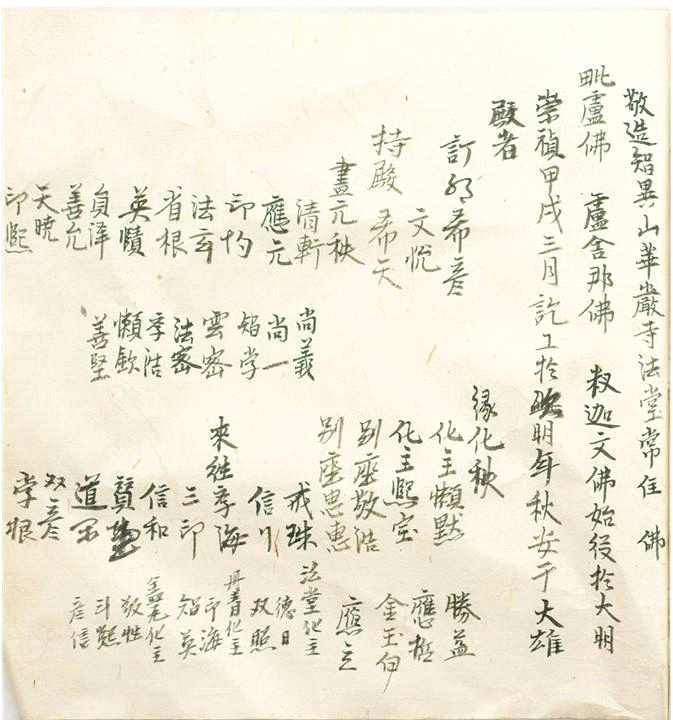 敬造智異山華嚴寺法堂常住 佛
毗盧佛 盧舍那佛 釈迦文佛始役於大明
崇禎甲戌三月訖工於 明年秋安于大雄
殿者
緣化秩
訂 希彥
化主懶默
勝益
文悅
化主熙宝
應哲
持殿 希天
別座敬浩
金玉伊
畫元秩
別座思惠
應立
清軒
尚義
戒珠
法堂化主
應元
尚一
信川
德日
双照
印均
智学
來往季海
丹青化主
印海
法玄
雲密
三印
智英
省根
法密
信和
盖瓦化主
英賾
季浩
敬性
貞澤
懶欽
道
斗
善允
善堅
双彥
彥信
天曉
学根
印熙